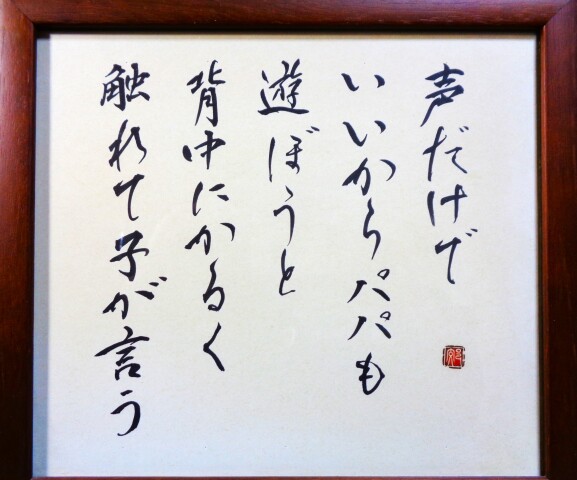 声だけで
いいからパパも
遊ぼうと
背中にかるく
触れて子が言う